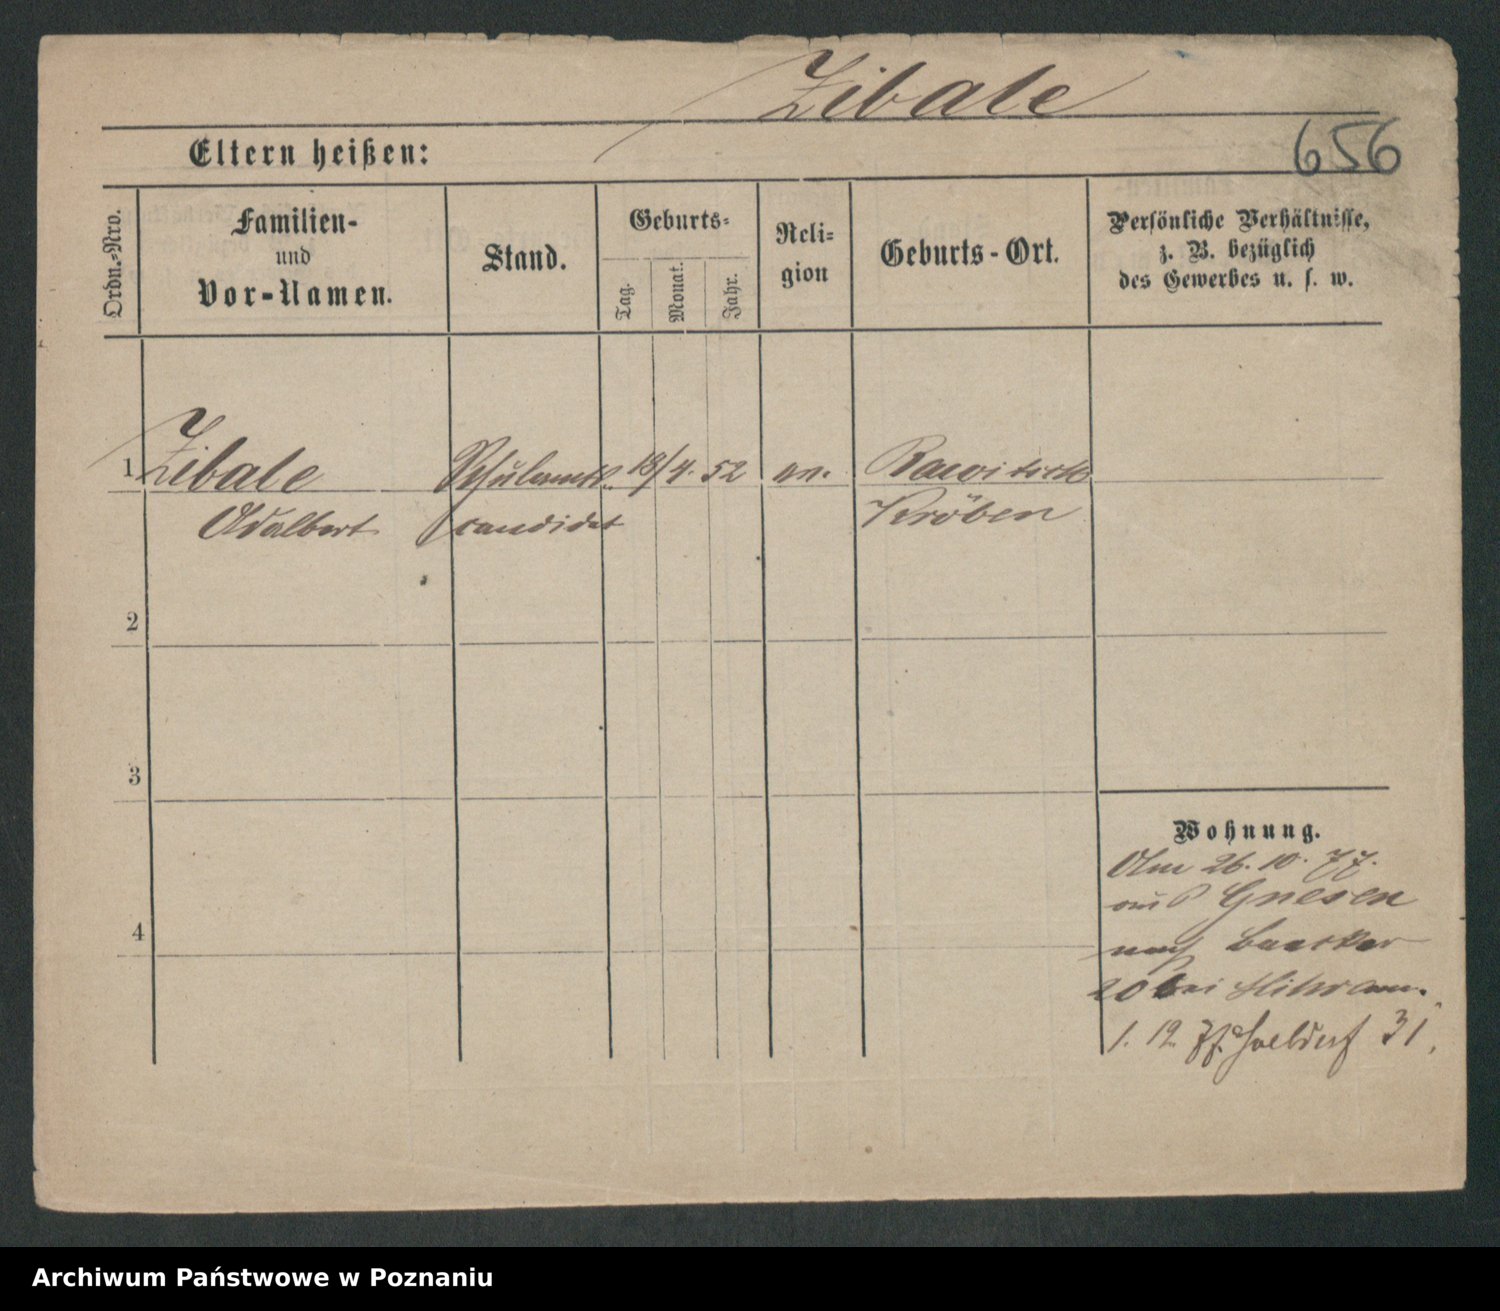 Zibale
656
Eltern heißen:
Ordn.-Nro.
Familien-
und
Vor-Namen.
Stand.
Geburts-
Tag.
Monat.
Jahr.
Reli-
gion
Geburts-Ort.
Persönliche Verhältnisse,
z. B. bezüglich
des Gewerbes u. s. w.
1 Zibale Schulamts 18/4. 52 Rawitsch
Adalbert candidat Kröben
2
3
4
Wohnung.
Am 26. 10. 77.
aus Gnesen
nach Baecker
20 bei
1. 12. 77. 31.
Archiwum Państwowe w Poznaniu